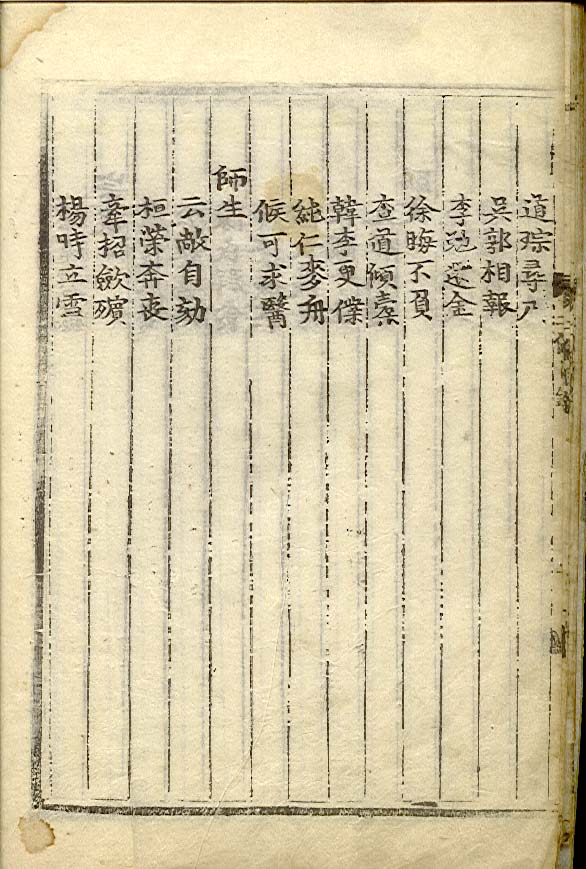 道琮尋尸
吳郭相報
李勉還金
徐晦不負
查道傾槖
韓李更僕
純仁麥舟
侯可求醫
師生
云敞自劾
桓榮奔喪
牽招歛殯
楊時立雪